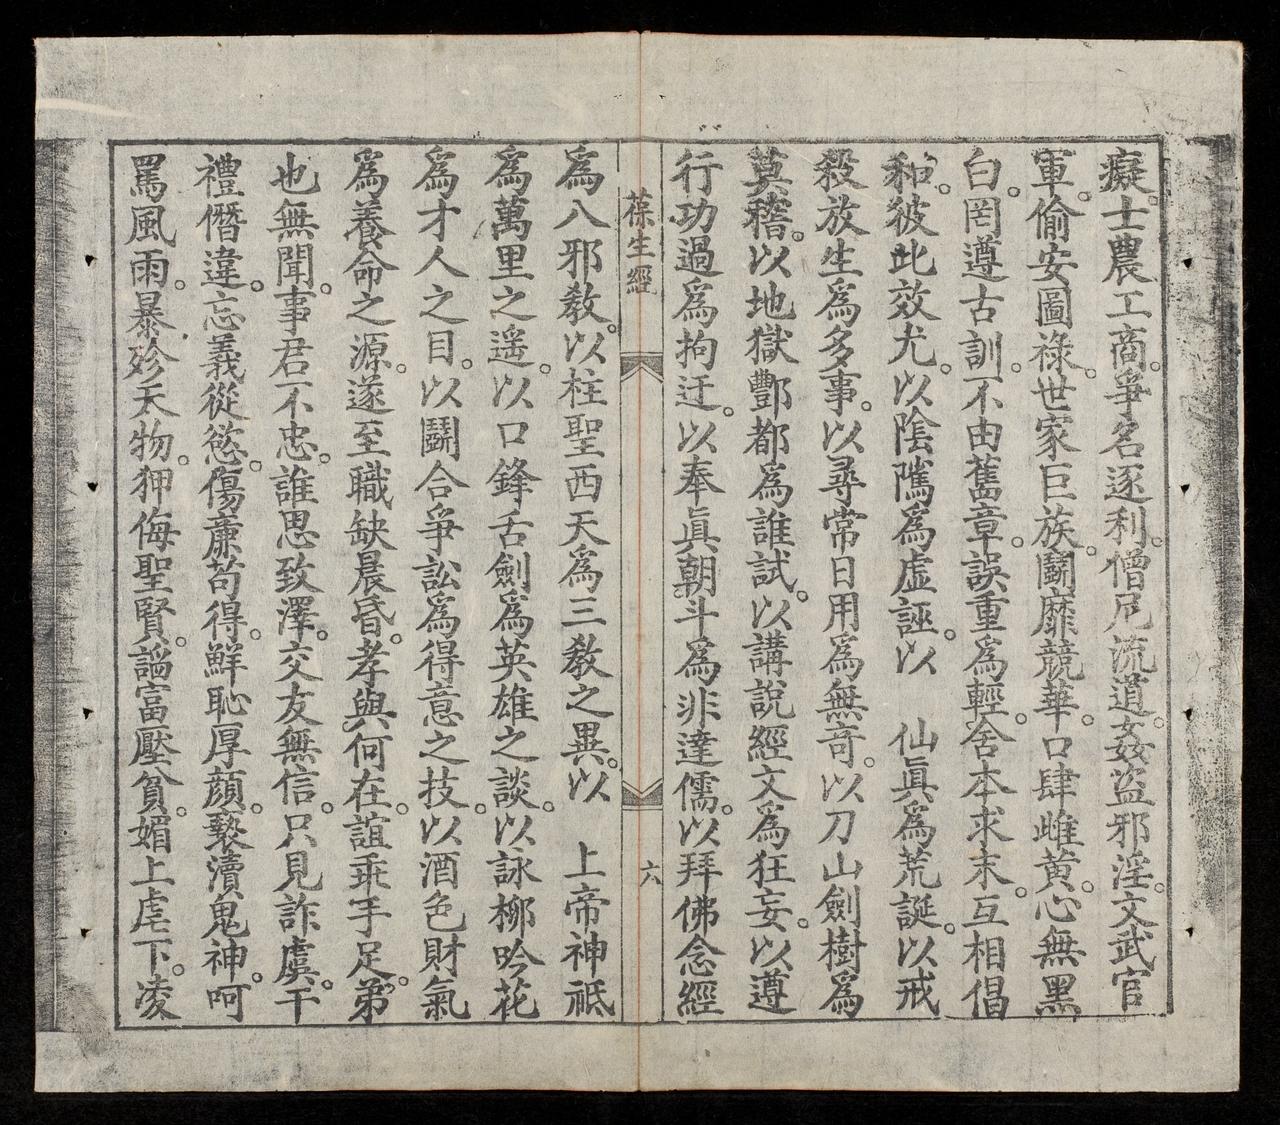 癡。士農工商。爭名逐利。僧尼流道。姦盜邪淫。文武官
軍。偷安圖祿。世家巨族。鬭靡競華。口肆雌黄。心無黑
白。罔遵古訓。不由舊章。誤重為輕。舍本求末。互相倡
和。彼此效尤。以陰隲為虛誣。以 仙眞為荒誕。以戒
殺放生為多事。以尋常日用為無奇。以刀山劍樹為
莫稽。以地獄酆都為誰試。以講說經文為狂妄。以遵
行功過為拘迂。以奉眞朝斗為非達儒。以拜佛念經
葆生經 六
為八邪教。以柱聖西天為三教之異。以 上帝神祗
為萬里之遥。以口鋒舌劍為英雄之談。以詠柳吟花
為才人之目。以鬭合爭訟為得意之技。以酒色財氣
為養命之源。遂至職缺晨昏。孝與何在。誼乖手足。弟
也無聞。事君不忠。誰思致澤。交友無信。只見詐虞。干
禮僭違。忘義從慾。傷亷苟得。鮮恥厚顔。褻瀆鬼神。呵
罵風雨。暴殄天物。狎侮聖賢。謟富壓貧。媚上虐下。凌